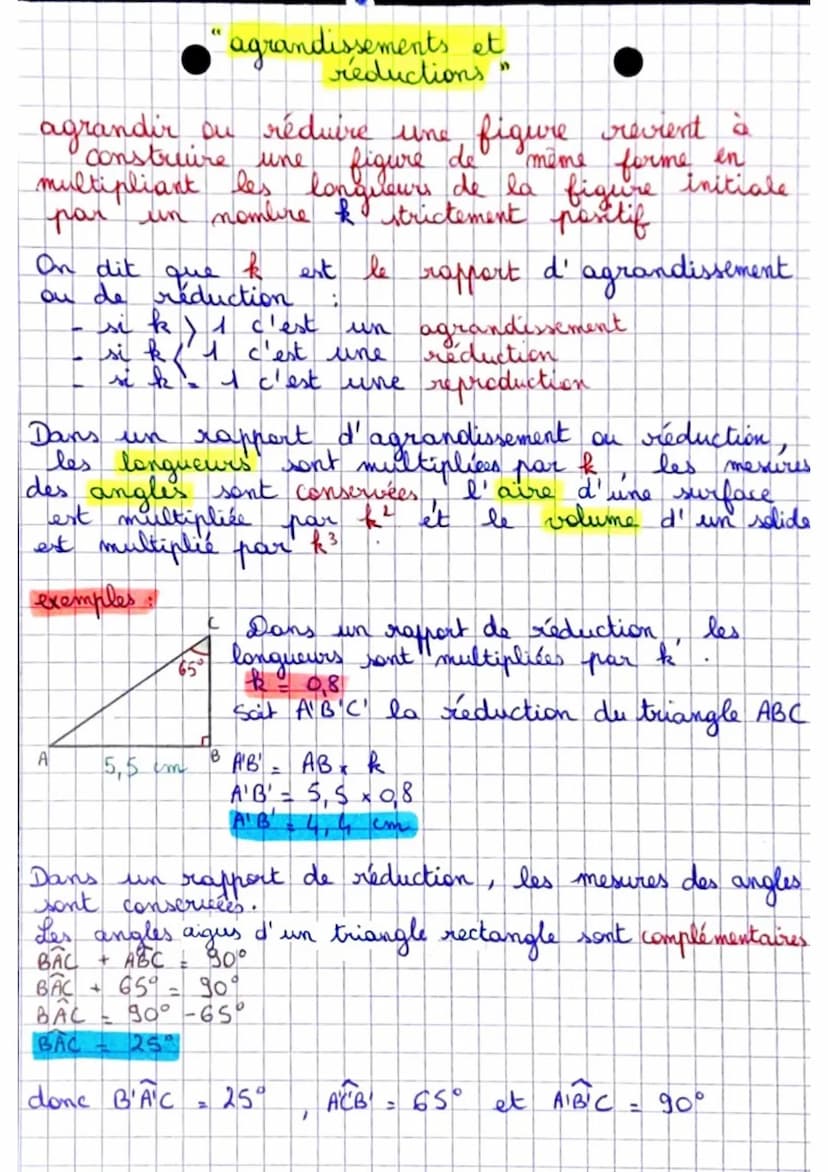 "agrandissements et
réductions"
agrandir ou réduire une figure revient à
construire une figure de même forme en
multipliant les longueurs de la figure initiale
par un nombre k strictement positif
On dit que k est le rapport d'agrandissement
ou de réduction :
- si k > 1 c'est un agrandissement
- si k < 1 c'est une réduction
- si k = 1 c'est une reproduction
Dans un rapport d'agrandissement ou réduction,
les longueurs sont multipliées par k, les mesures
des angles sont conservées, l'aire d'une surface
est multipliée par k² et le volume d'un solide
est multiplié par k³.
exemples :
C
65°
A
5,5 cm
B
Dans un rapport de réduction, les
longueurs sont multipliées par k.
k = 0,8
Soit A'B'C' la réduction du triangle ABC
A'B' = AB x k
A'B' = 5,5 x 0,8
A'B' = 4,4 cm
Dans un rapport de réduction, les mesures des angles
sont conservées.
Les angles aigus d'un triangle rectangle sont complémentaires
BÂC + ABC = 90°
BÂC + 65° = 90°
BÂC = 90° - 65°
BÂC = 25°
donc B'Â'C = 25°, A'ĈB' = 65° et A'B̂'C = 90°